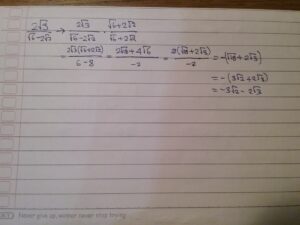 2√3/(√6-2√2) → 2√3/(√6-2√2) · (√6+2√2)/(√6+2√2)
= 2√3(√6+2√2)/(6-8) = (2√18+4√6)/-2 = 2(√18+2√3)/-2 = -(√18+2√3)
= -(3√2+2√3)
= -3√2-2√3
Never give up, winner never stop trying